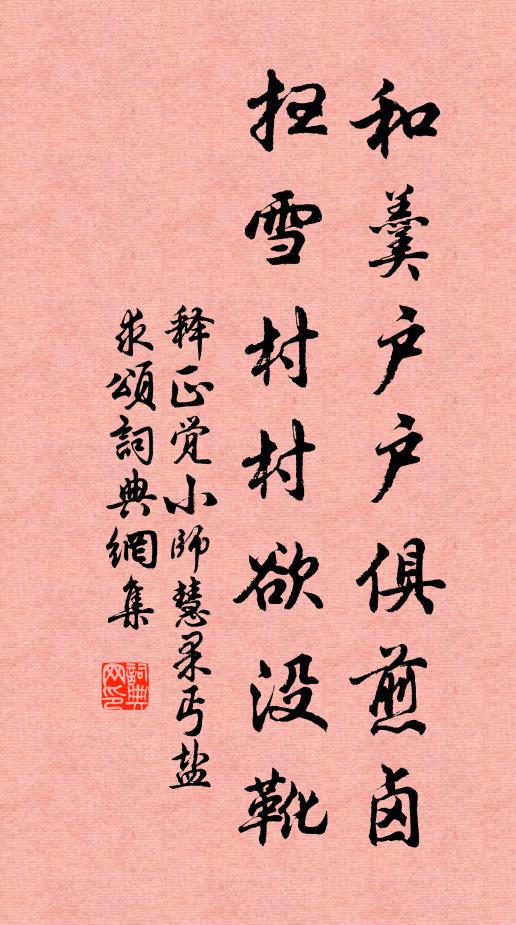 和羹户户俱煎卤
扫雪村村欲没靴
释正觉小师慧杲丐盐
求颂词典网集
詞典网印